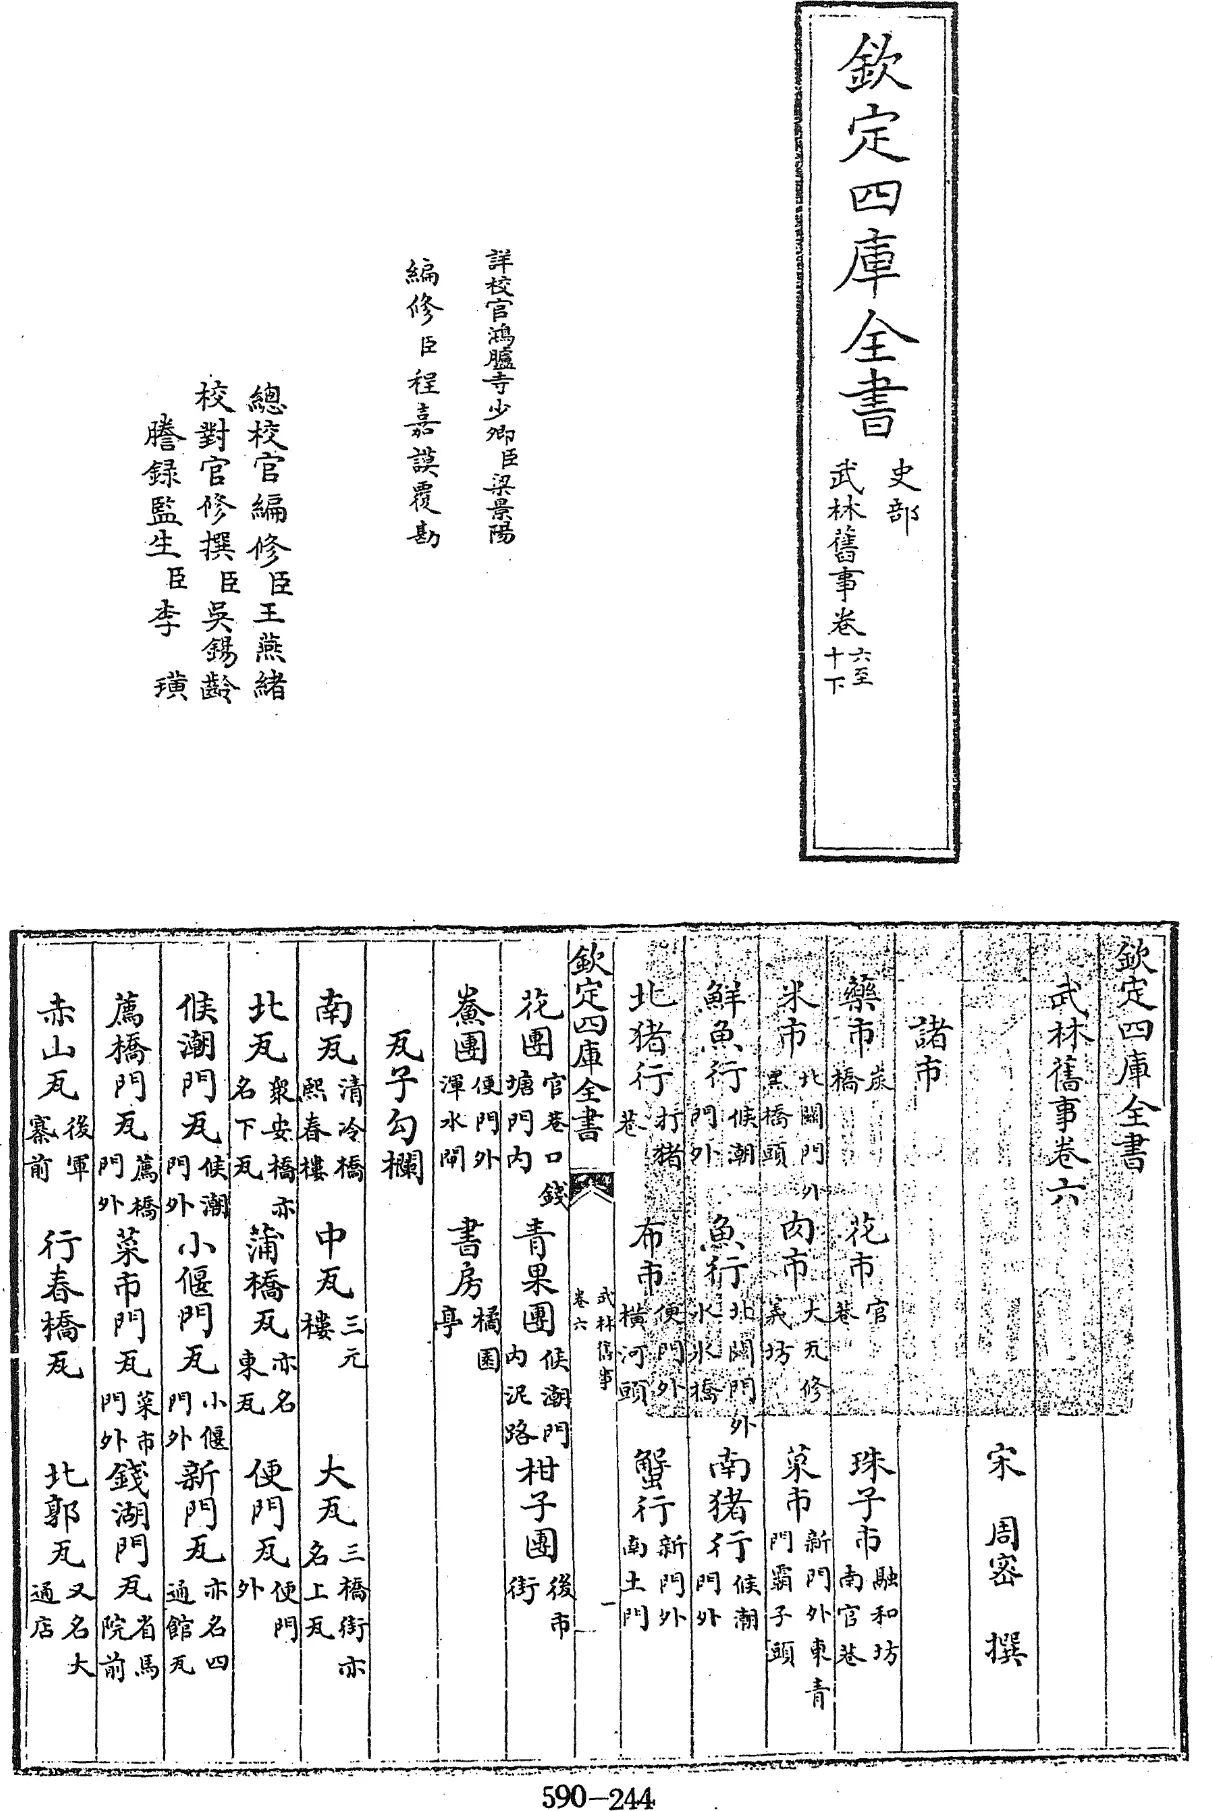 欽定四庫全書
史部
武林舊事卷六至十下
詳校官鴻臚寺少卿臣梁景陽
編修臣程嘉謨覆勘
總校官編修臣王燕緒
校對官修撰臣吳錫齡
謄録監生臣李璜
欽定四庫全書
武林舊事卷六
宋周密撰
諸市
藥市炭橋 花市官巷 珠子市融和坊南官巷
米市北關門外黑橋頭 肉市大瓦修義坊 菜市新門外東青門霸子頭
鮮魚行候潮門外 魚行北關門外水氷橋 南猪行候潮門外
北猪行打猪巷 布市便門外橫河頭 蟹行新門外南土門
欽定四庫全書 武林舊事卷六 一
花團官巷口錢塘門内 青果團候潮門内泥路 柑子團後市街
鯗團便門外渾水閘 書房橘園亭
瓦子勾欄
南瓦清冷橋熙春樓 中瓦三元樓 大瓦三橋街亦名上瓦
北瓦衆安橋亦名下瓦 蒲橋瓦亦名東瓦 便門瓦便門外
候潮門瓦候潮門外 小偃門瓦小偃門外 新門瓦亦名四通館瓦
薦橋門瓦薦橋門外 菜市門瓦菜市門外 錢湖門瓦省馬院前
赤山瓦後軍寨前 行春橋瓦 北郭瓦又名大通店
590-244